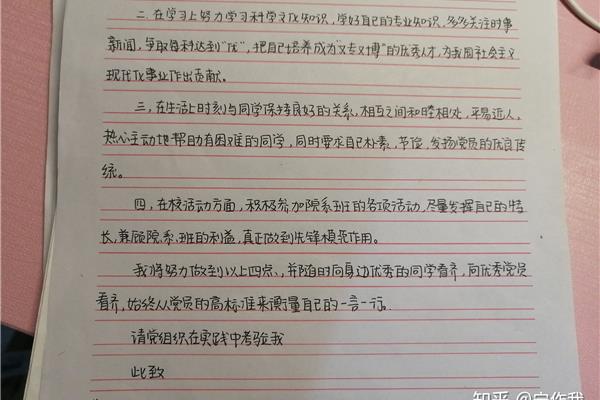 二、在学习上努力学习科学文化知识，学好自己的专业知识，多多关注时事
新闻，争取每科达到“优”，把自己培养成为“又专又博”的优秀人才，为我国社会主义
现代化事业作出贡献。
三、在生活上时刻与同学保持良好的关系，相互之间和睦相处，平易近人，
热心主动地帮助有困难的同学，同时要求自己朴素，节俭，发扬党员的优良传
统。
四、在校活动方面，积极参加院系班的各项活动，尽量发挥自己的特
长，兼顾院系、班的利益，真正做到先锋模范作用。
我将努力做到以上四点，并随时向身边优秀的同学看齐，向优秀党员
看齐，始终从党员的高标准来衡量自己的一言一行。
请党组织在实践中考验我
此致
知乎 @